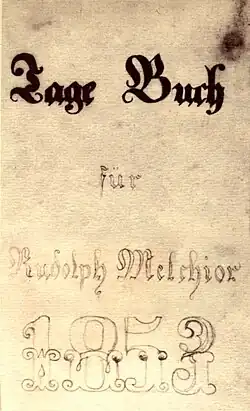 Tage Buch
für
Rudolph Melchior
1853